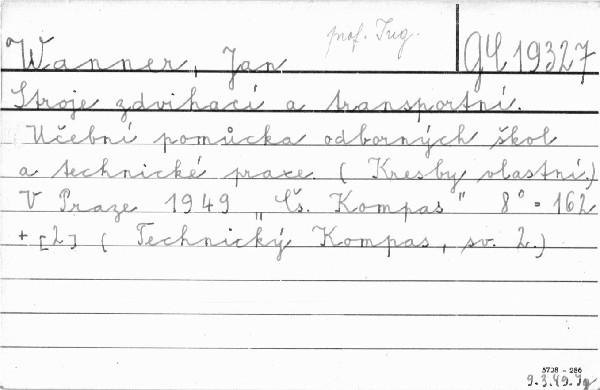 prof. Ing.
Wanner, Jan
Stroje zdvihací a transportní.
Učební pomůcka odborných škol
a technické praxe. (Kresby vlastní.)
V Praze 1949 „Čs. Kompas“ 8° - 162
+ [2] (Technický Kompas, sv. 2.)
5738 - 286
9.3.49.